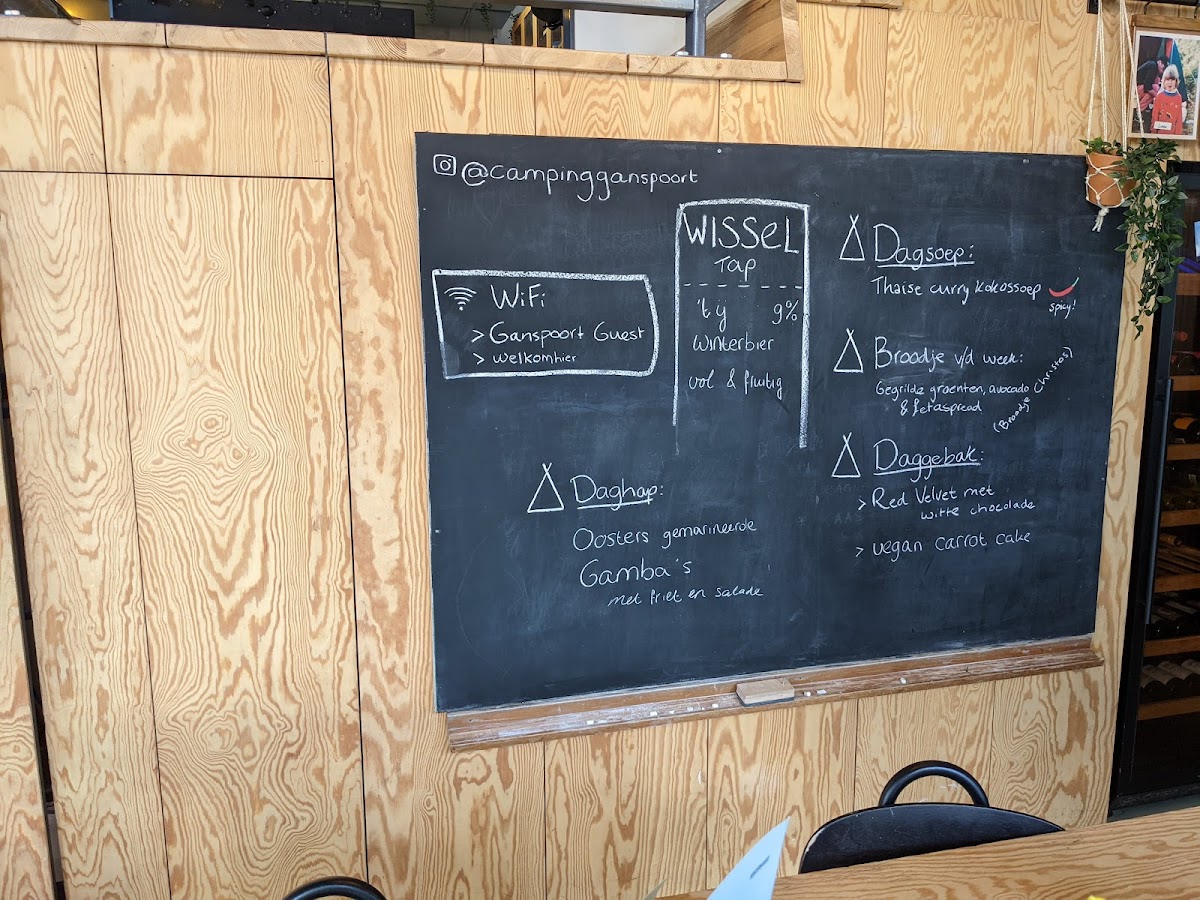 @campingganspoort
WiFi
> Ganspoort Guest
> welkomhier
WISSEL
TAP
't ij 9%
winterbier
vol & fruitig
Daghap:
Oosters gemarineerde
Gamba's
met friet en salade
Dagsoep:
Thaise curry kokossoep
spicy!
Broodje v/d week:
Gegrilde groenten, avocado
& fetaspread
(Broodje Chrissos)
Daggebak:
> Red Velvet met
witte chocolade
> vegan carrot cake